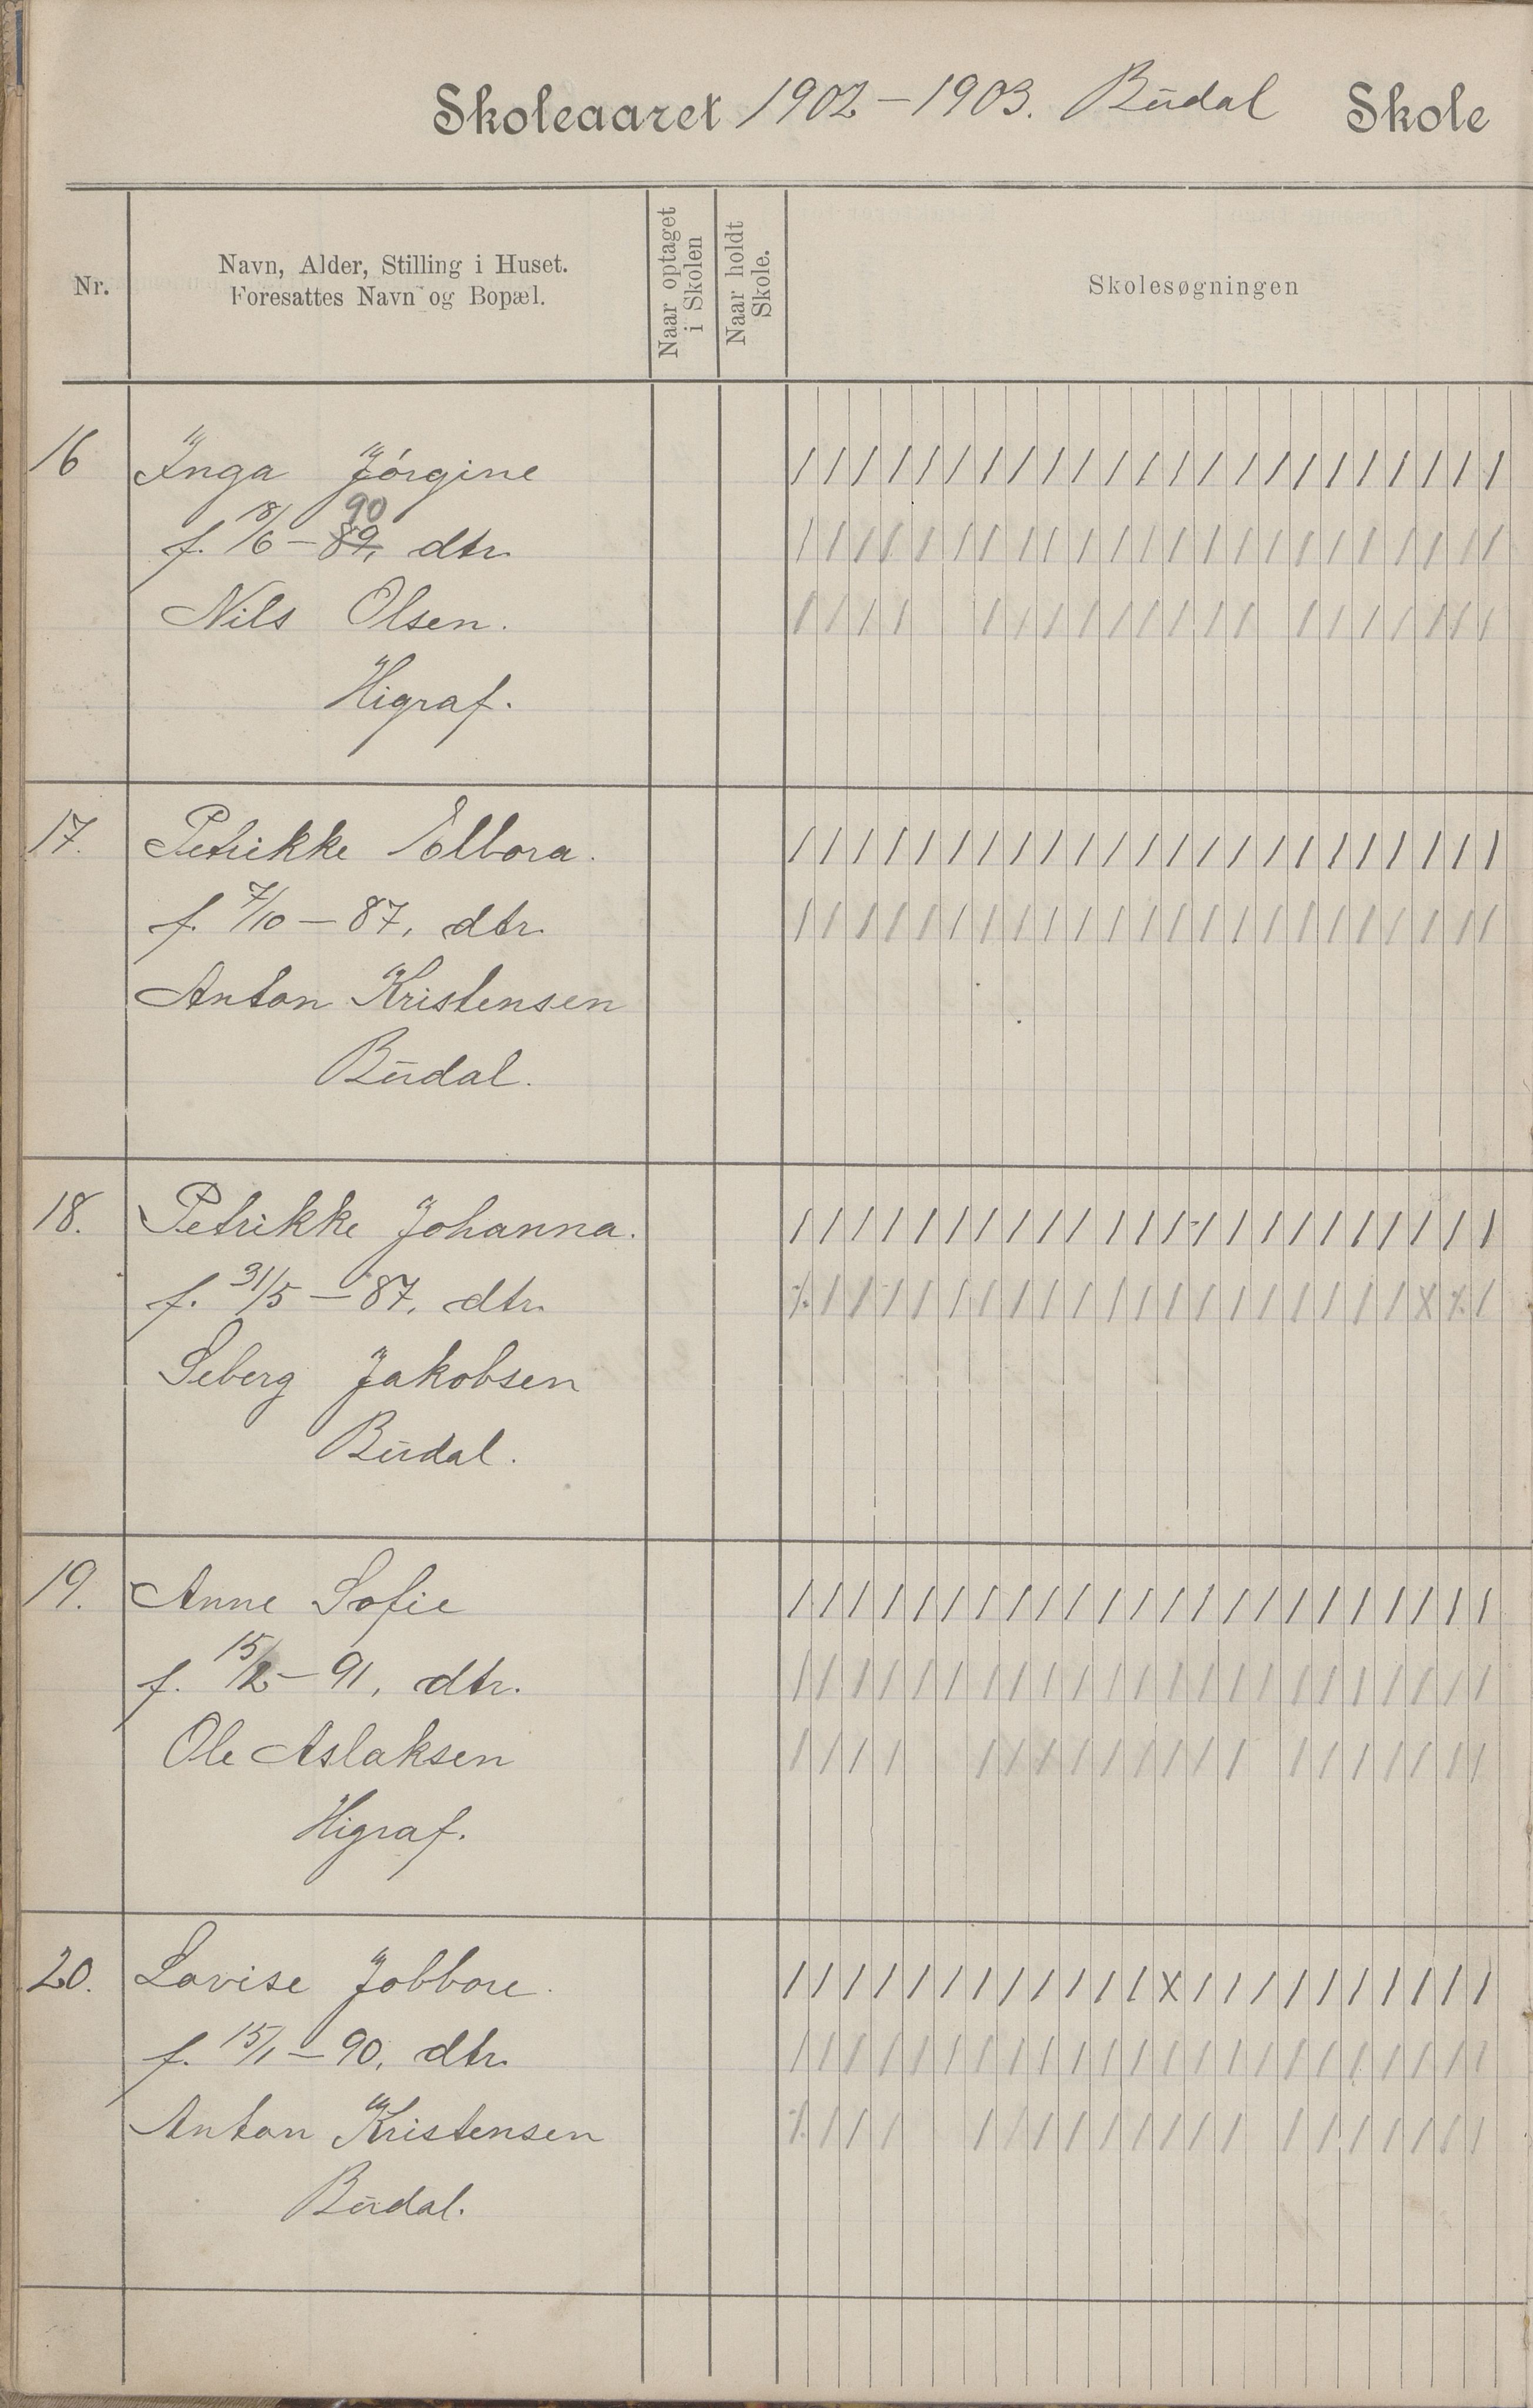 Skoleaaret 1902-1903. Būdal Skole
Nr.
Navn, Alder, Stilling i Huset.
Foresattes Navn og Bopæl.
Naar optaget
i Skolen
Naar holdt
Skole.
Skolesøgningen
16 Inga Jørgine
90
f. 18/6 - 89, dtr.
Nils Olsen.
Higraf.
17. Petrikke Elbora.
f. 7/10 - 87, dtr.
Anton Kristensen
Būdal.
18. Petrikke Johanna.
f. 31/5 - 87, dtr.
Seberg Jakobsen
Būdal.
19. Anne Sofie
f. 15/2 - 91, dtr.
Ole Aslaksen
Higraf.
20. Lovise Jobbore.
f. 15/1 - 90, dtr.
Anton Kristensen
Būdal.